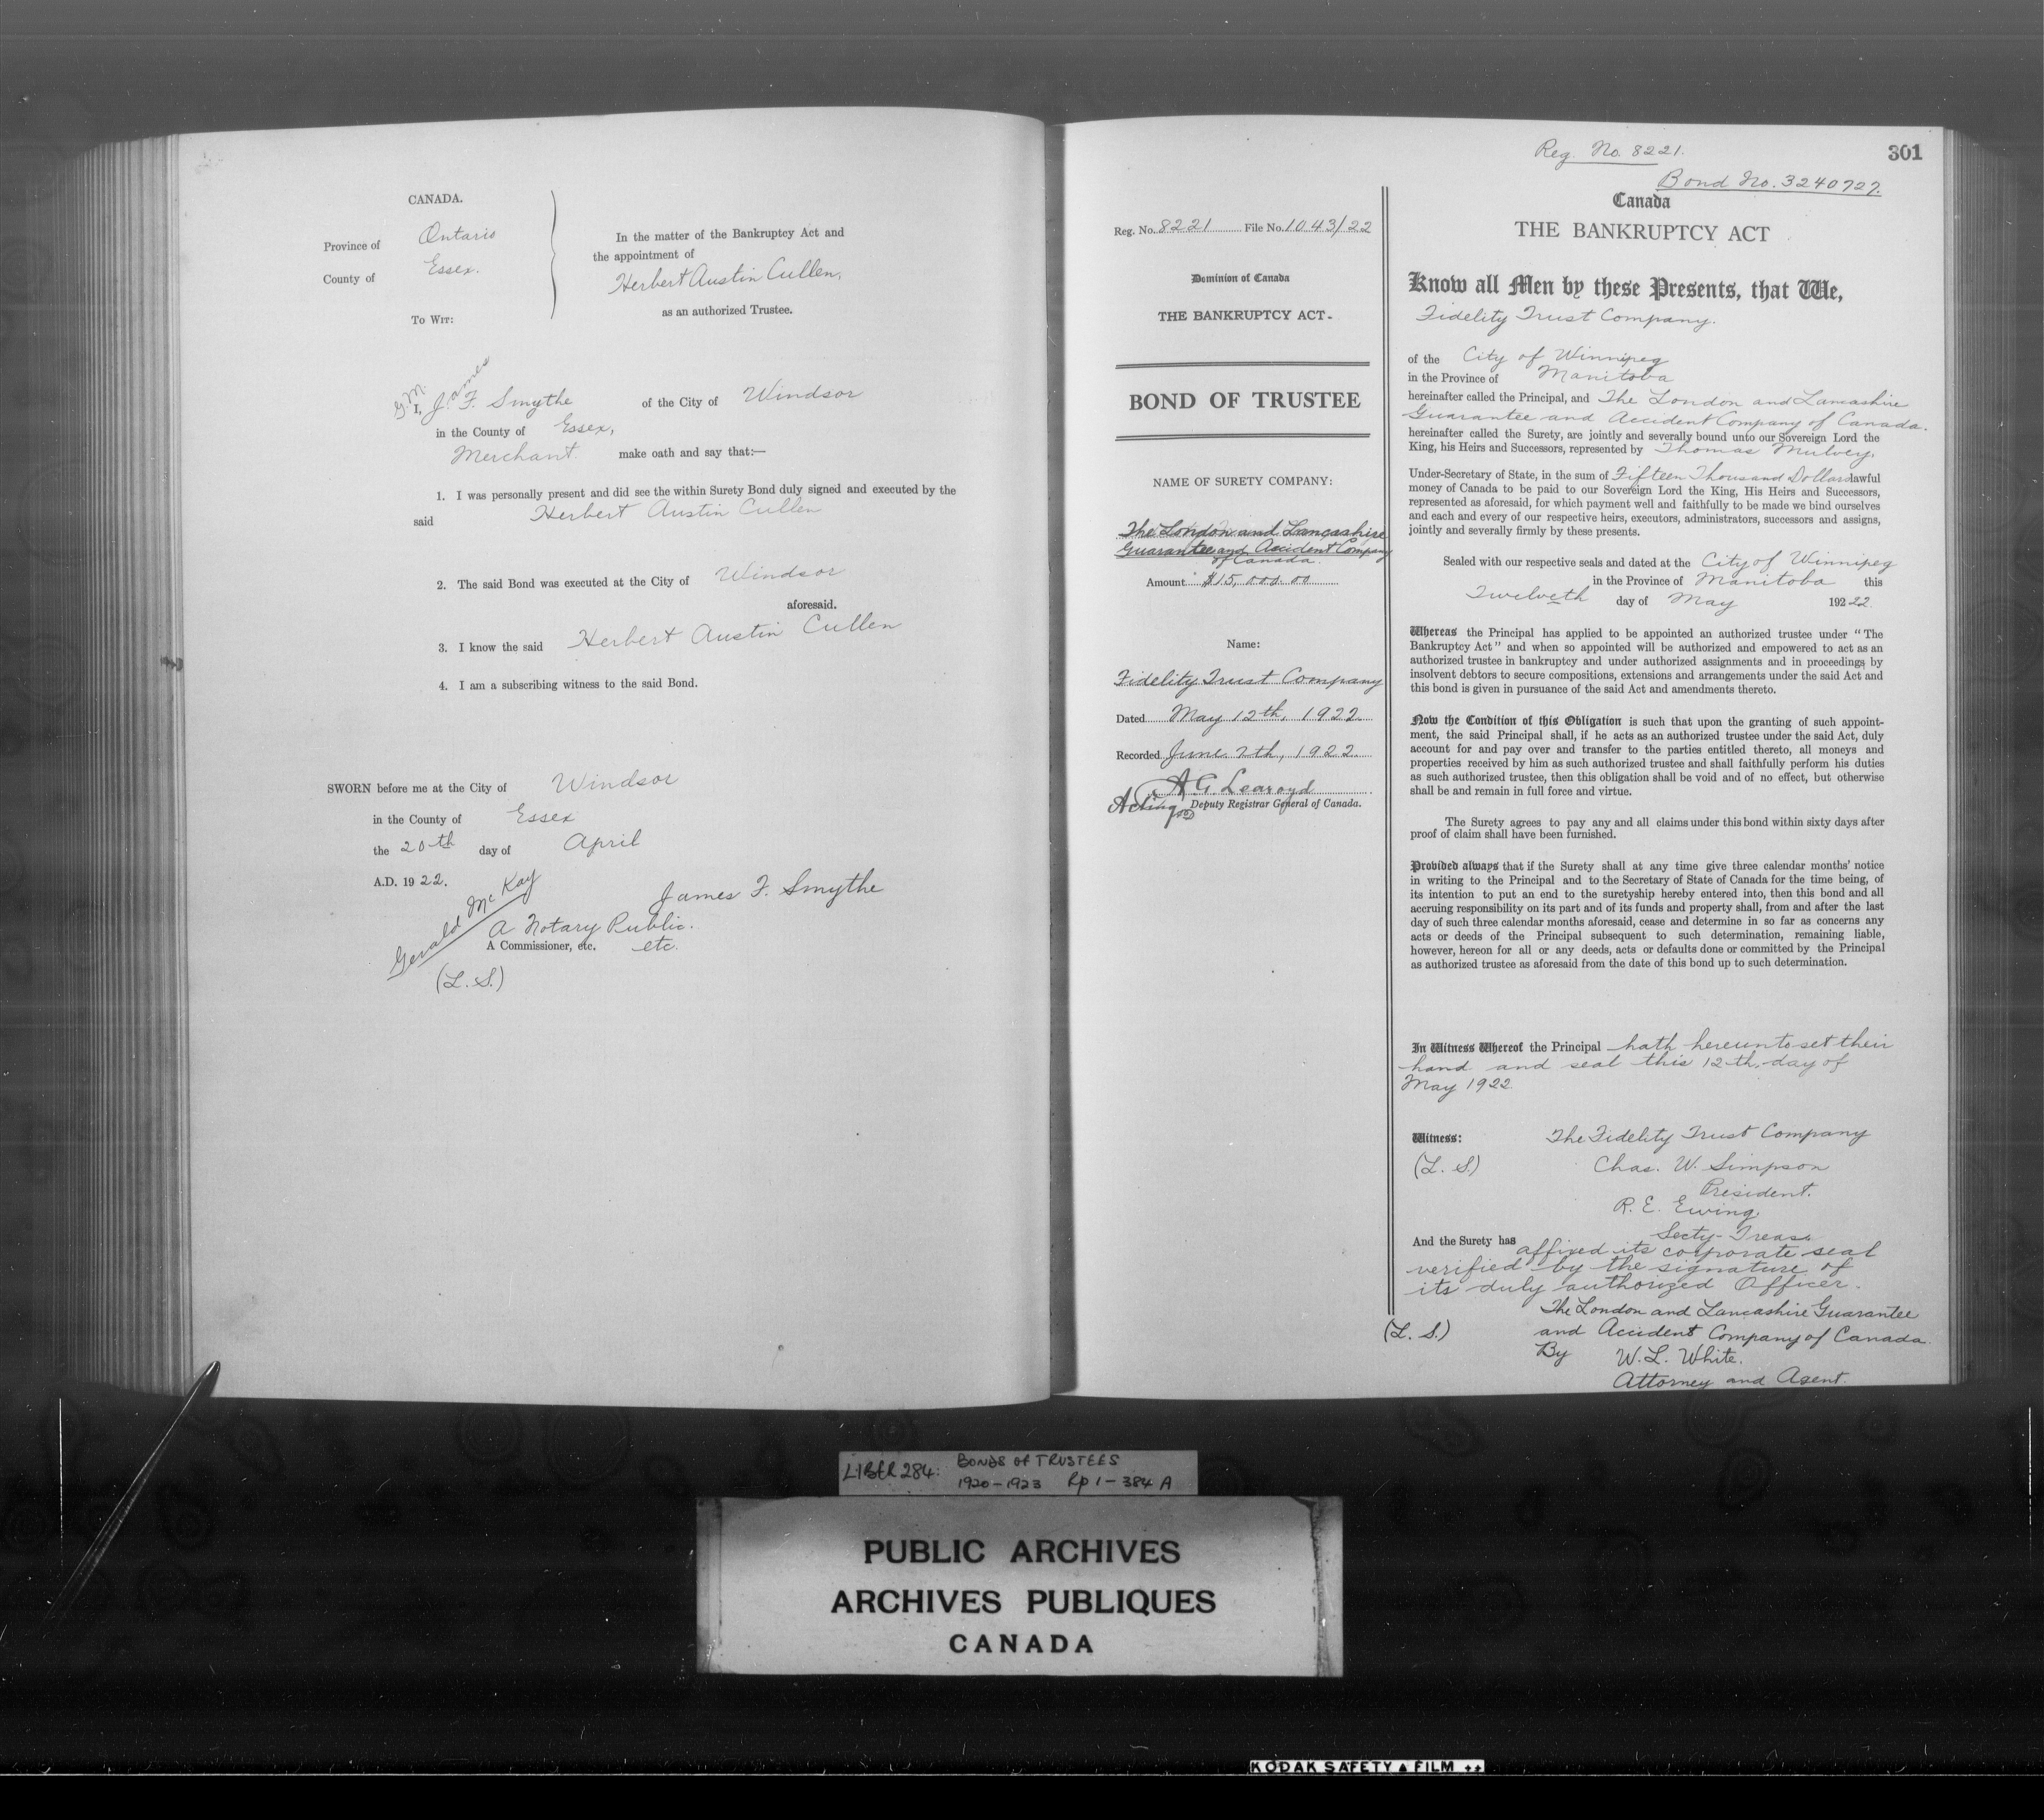 CANADA.
Province of Ontario
County of Essex.
To Wit:
In the matter of the Bankruptcy Act and
the appointment of
Herbert Austin Cullen,
as an authorized Trustee.
G.M. James
I, J. F. Smythe of the City of Windsor
in the County of Essex,
Merchant. make oath and say that:—
1. I was personally present and did see the within Surety Bond duly signed and executed by the
said Herbert Austin Cullen
2. The said Bond was executed at the City of Windsor
aforesaid.
3. I know the said Herbert Austin Cullen
4. I am a subscribing witness to the said Bond.
SWORN before me at the City of Windsor
in the County of Essex
the 20th day of April
A.D. 1922.
Gerald McKay
James F. Smythe
A Notary Public.
A Commissioner, etc. etc.
(L. S.)
Reg. No. 8221 File No. 1043/22
Dominion of Canada
THE BANKRUPTCY ACT.
BOND OF TRUSTEE
NAME OF SURETY COMPANY:
The London and Lancashire
Guarantee and Accident Company
of Canada.
Amount $15,000.00
Name:
Fidelity Trust Company
Dated May 12th, 1922
Recorded June 2th, 1922
A G Learoyd
Acting Deputy Registrar General of Canada.
Reg. No. 8221. 301
Bond No. 3240727.
Canada
THE BANKRUPTCY ACT
Know all Men by these Presents, that We,
Fidelity Trust Company.
of the City of Winnipeg
in the Province of Manitoba
hereinafter called the Principal, and The London and Lancashire
Guarantee and Accident Company of Canada.
hereinafter called the Surety, are jointly and severally bound unto our Sovereign Lord the
King, his Heirs and Successors, represented by Thomas Mulvey,
Under-Secretary of State, in the sum of Fifteen Thousand Dollars lawful
money of Canada to be paid to our Sovereign Lord the King, His Heirs and Successors,
represented as aforesaid, for which payment well and faithfully to be made we bind ourselves
and each and every of our respective heirs, executors, administrators, successors and assigns,
jointly and severally firmly by these presents.
Sealed with our respective seals and dated at the City of Winnipeg
in the Province of Manitoba this
Twelveth day of May 192 22.
Whereas the Principal has applied to be appointed an authorized trustee under "The
Bankruptcy Act" and when so appointed will be authorized and empowered to act as an
authorized trustee in bankruptcy and under authorized assignments and in proceedings by
insolvent debtors to secure compositions, extensions and arrangements under the said Act and
this bond is given in pursuance of the said Act and amendments thereto.
Now the Condition of this Obligation is such that upon the granting of such appoint-
ment, the said Principal shall, if he acts as an authorized trustee under the said Act, duly
account for and pay over and transfer to the parties entitled thereto, all moneys and
properties received by him as such authorized trustee and shall faithfully perform his duties
as such authorized trustee, then this obligation shall be void and of no effect, but otherwise
shall be and remain in full force and virtue.
The Surety agrees to pay any and all claims under this bond within sixty days after
proof of claim shall have been furnished.
Provided always that if the Surety shall at any time give three calendar months' notice
in writing to the Principal and to the Secretary of State of Canada for the time being, of
its intention to put an end to the suretyship hereby entered into, then this bond and all
accruing responsibility on its part and of its funds and property shall, from and after the last
day of such three calendar months aforesaid, cease and determine in so far as concerns any
acts or deeds of the Principal subsequent to such determination, remaining liable,
however, hereon for all or any deeds, acts or defaults done or committed by the Principal
as authorized trustee as aforesaid from the date of this bond up to such determination.
In Witness Whereof the Principal hath hereunto set their
hand and seal this 12th. day of
May 1922.
Witness: The Fidelity Trust Company
(L. S.) Chas. W. Simpson
President.
R. E. Ewing.
Secty-Treas.
And the Surety has affixed its corporate seal
verified by the signature of
its duly authorized Officer.
The London and Lancashire Guarantee
(L. S.) and Accident Company of Canada.
By W. L. White.
Attorney and Agent.
LIBER 284: BONDS OF TRUSTEES
1920-1923 Pp 1-384 A
PUBLIC ARCHIVES
ARCHIVES PUBLIQUES
CANADA
KODAK SAFETY FILM